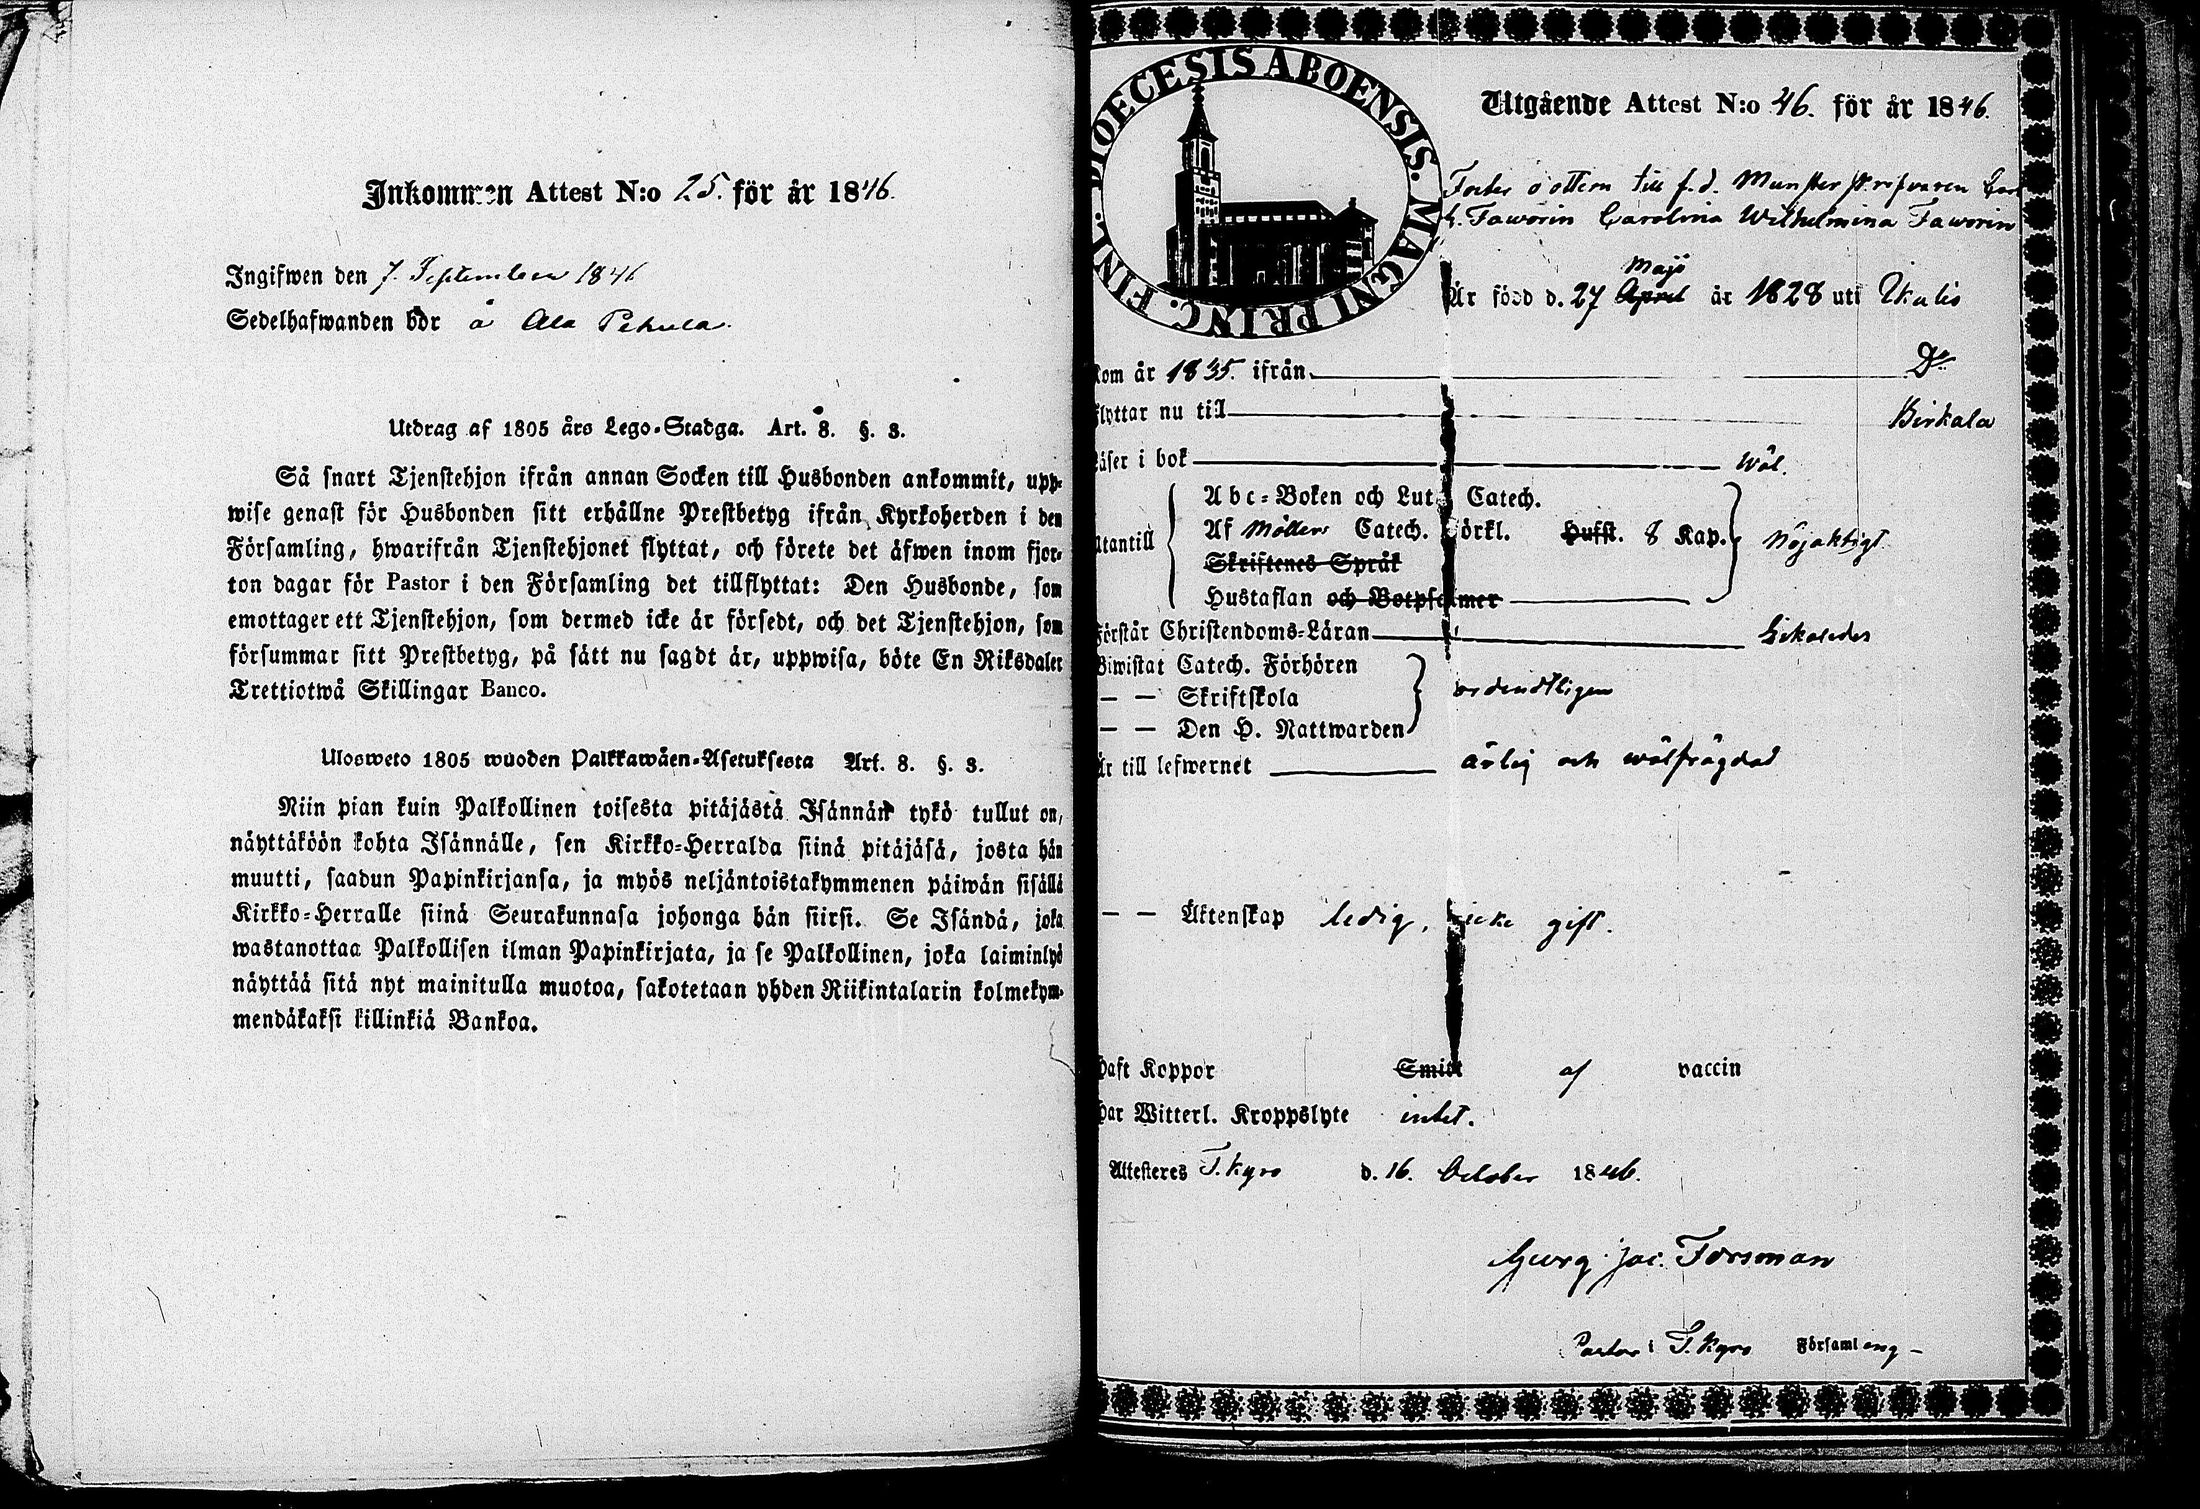 Inkommen Attest N:o 25. för år 1846.
Ingifwen den 7. September 1846
Sedelhafwanden bör å Ala Pekula.
Utdrag af 1805 års Lego-Stadga. Art. 8. §. 3.
Så snart Tjenstehjon ifrån annan Socken till Husbonden ankommit, upp-
wise genast för Husbonden sitt erhållne Prestbetyg ifrån Kyrkoherden i den
Församling, hwarifrån Tjenstehjonet flyttat, och förete det äfwen inom fjor-
ton dagar för Pastor i den Församling det tillflyttat: Den Husbonde, som
emottager ett Tjenstehjon, som dermed icke är försedt, och det Tjenstehjon, som
försummar sitt Prestbetyg, på sätt nu sagdt är, uppwisa, böte En Riksdaler
Trettiotwå Skillingar Banco.
Ulosweto 1805 wuoden Palkkawäen-Asetuksesta Art. 8. §. 3.
Niin pian kuin Palkollinen toisesta pitäjästä Isännän tykö tullut on,
näyttäköön kohta Isännälle, sen Kirkko-Herralda siinä pitäjäsä, josta hän
muutti, saadun Papinkirjansa, ja myös neljäntoistakymmenen päiwän sisällä
Kirkko-Herralle siinä Seurakunnasa johonga hän siirsi. Se Isändä, joka
wastanottaa Palkollisen ilman Papinkirjata, ja se Palkollinen, joka laiminlyö
näyttää sitä nyt mainitulla muotoa, sakotetaan yhden Riikintalarin kolmekym-
mendäkaksi killinkiä Bankoa.
FINL. DIOECESIS ABOENSIS. MAGNI PRINC.
Utgående Attest N:o 46. för år 1846.
Foster dottern till f.d. Munsterskrifvaren Carl
G. Faworin Carolina Wilhelmina Faworin
Maji
Är född d. 27 April år 1828 uti Ikalis
Kom år 1835. ifrån D:o
Flyttar nu till Birkala
Läser i bok wäl.
Abc-Boken och Lut. Catech.
Utantill Af Möllers Catech. Förkl. Hufst. 8 Kap. Nöjaktigt
Skriftenes Språk
Hustaflan och Botpsalmer
Förstår Christendoms-Läran Likaledes
Biwistat Catech. Förhören
— — Skriftskola ordendtligen
— — Den H. Nattwarden
Är till lefwernet ärlig och wälfrägdad
— — Äktenskap ledig, icke gift.
Haft Koppor Smitt af vaccin
Har Witterl. Kroppslyte intet.
Attesteres T.kyro d. 16. October 1846.
Georg Jac. Forsman
Pastor i T.kyro Församling